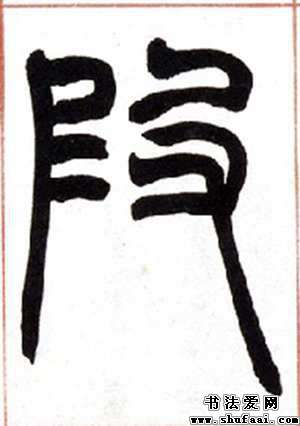 叚
书法爱网
www.shufaai.com